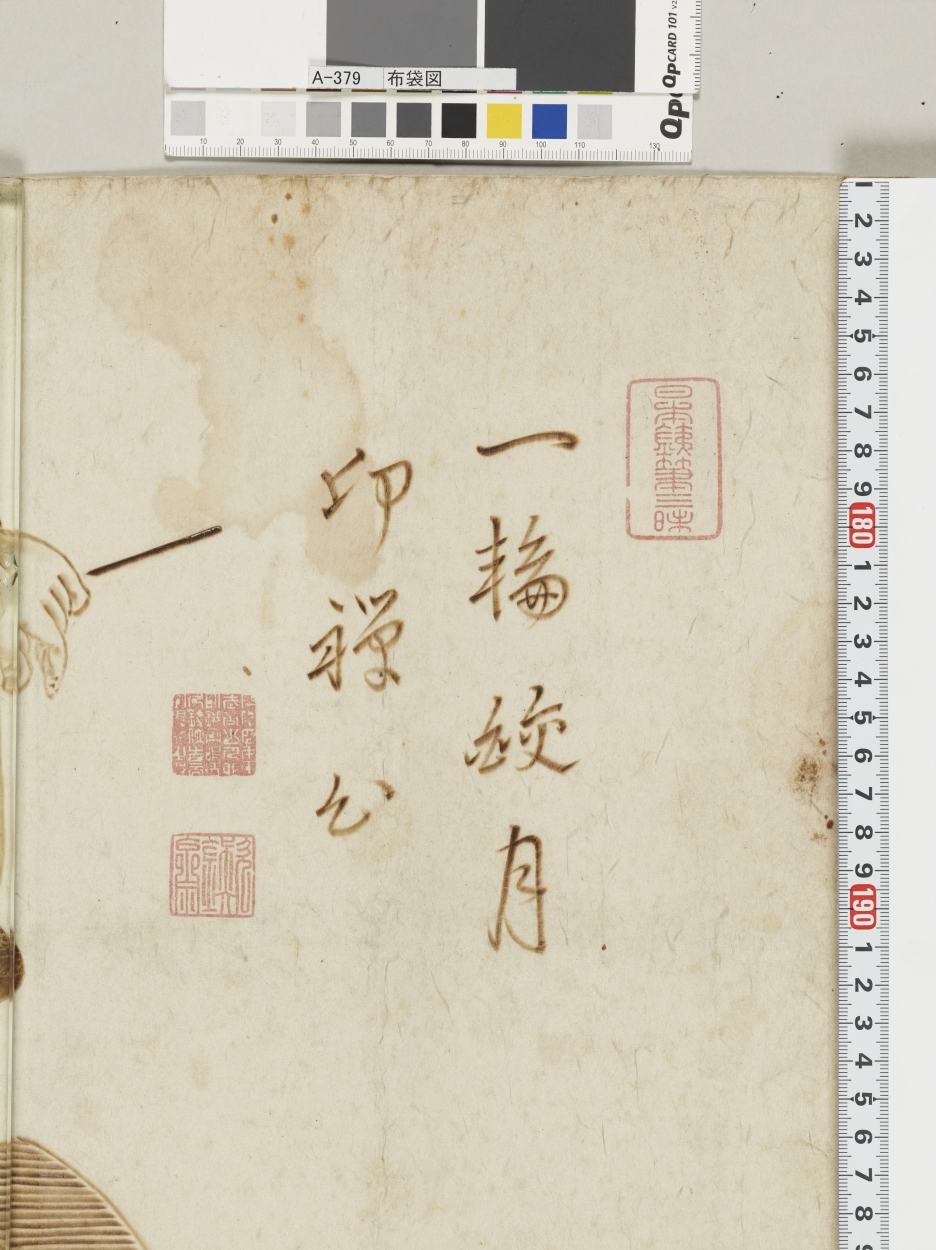 QPCARD 101 v2
A-379 布袋図
QP
10 20 30 40 50 60 70 80 90 100 110 130
日本銕筆三昧
一輪皎月
印禪心
1 2 3 4 5 6 7 8 9 180 1 2 3 4 5 6 7 8 9 190 1 2 3 4 5 6 7 8 9